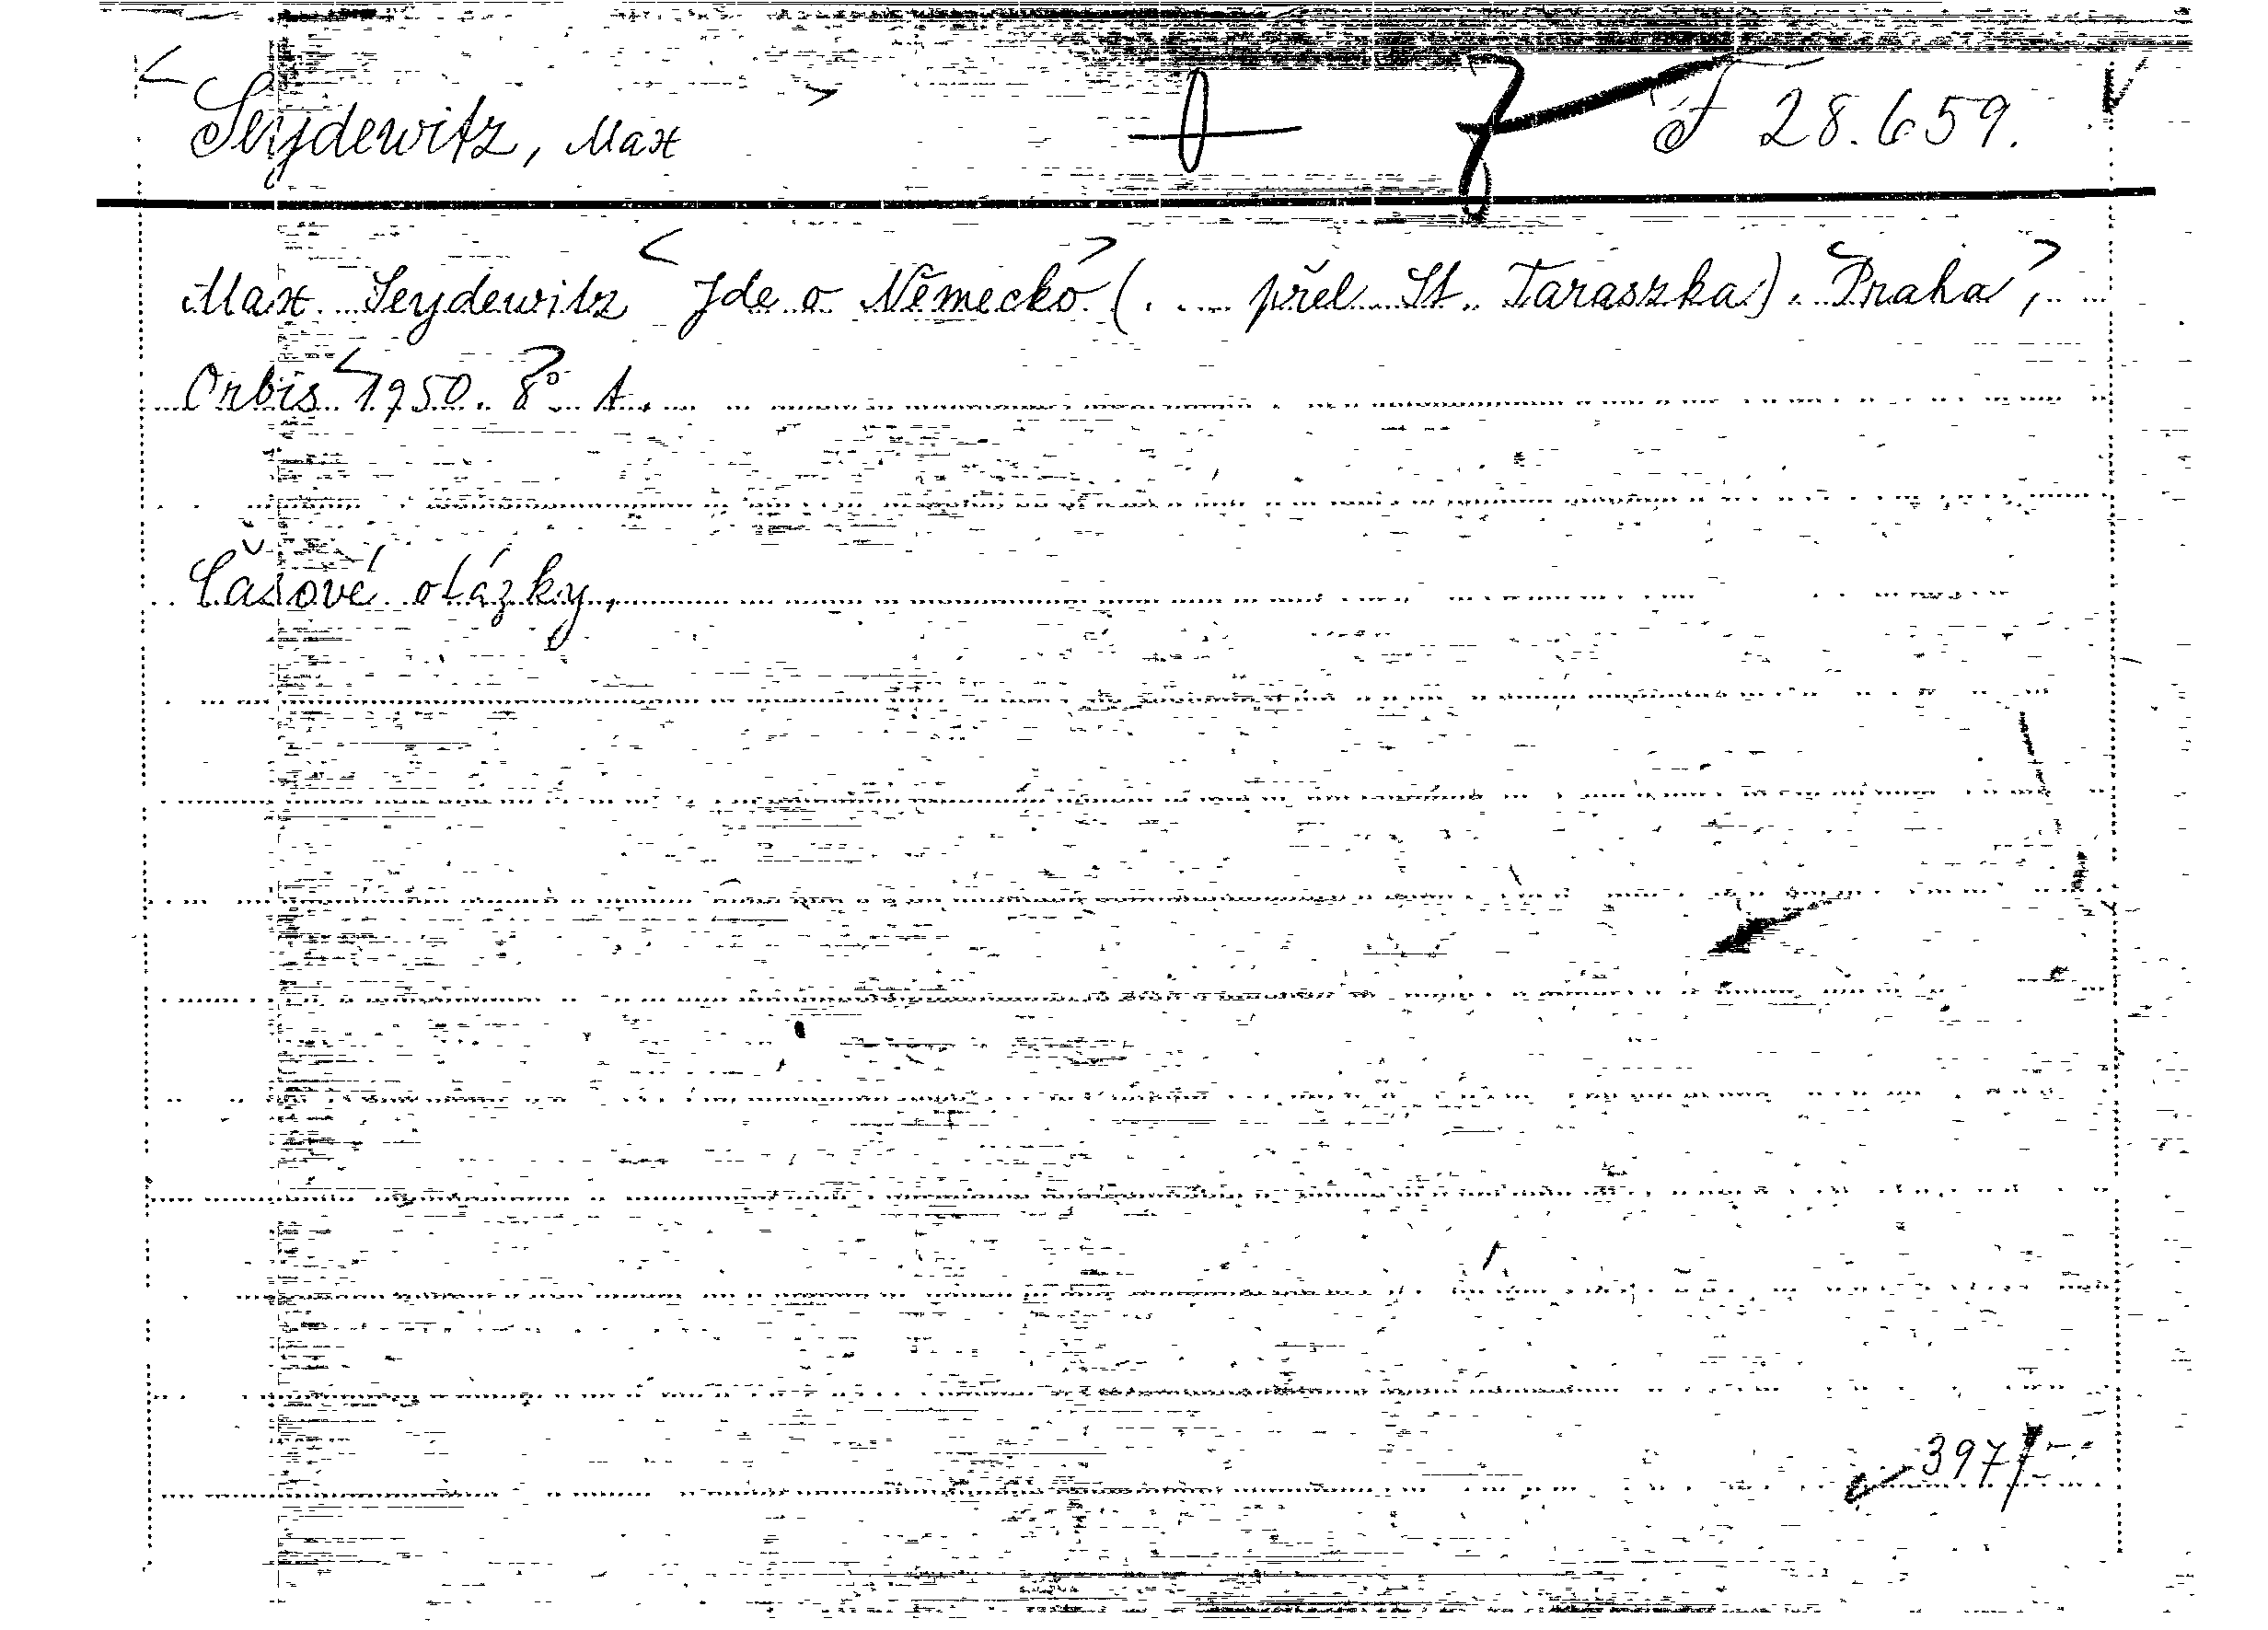 Seydewitz, Max F 28.659.
Max Seydewitz Jde o Německo (. ... přel. St. Taraszka). Praha,
Orbis 1950. 8° A.
Časové otázky,
397